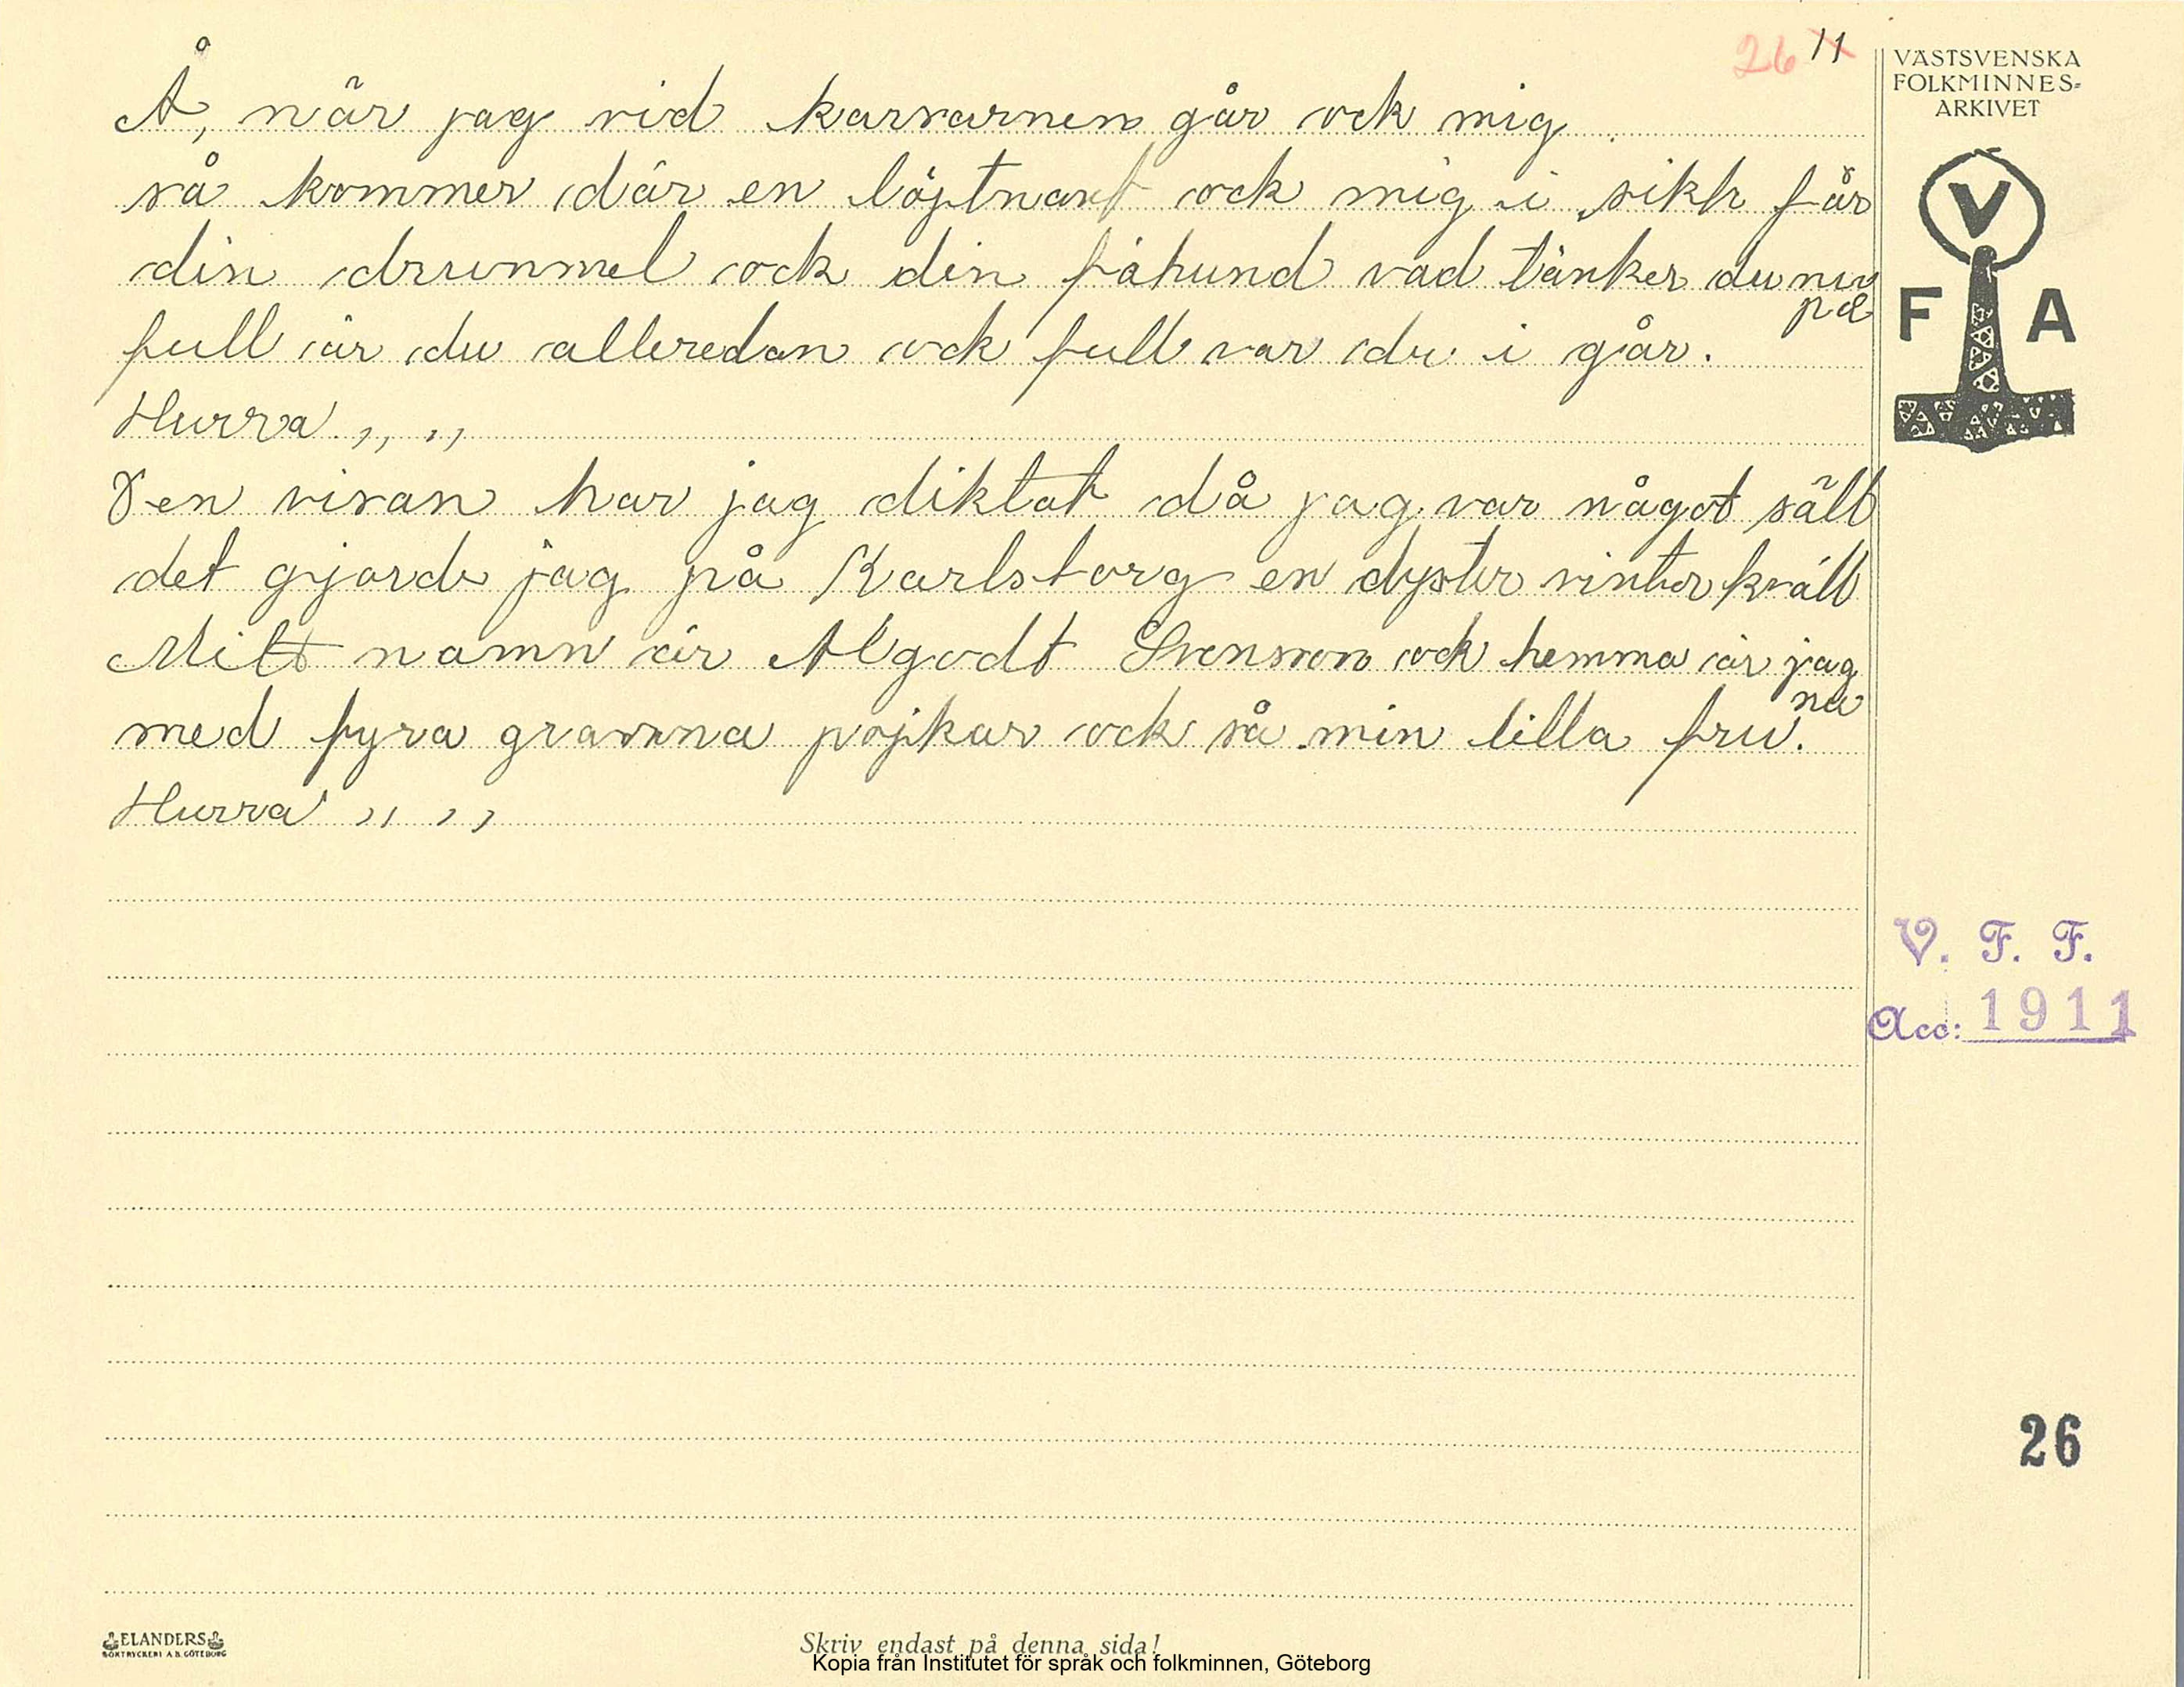 26 11
Å, när jag vid karvarnen går ock mig
så kommer där en löjtnant ock mig i sikte får
din drummel ock din fähund vad tänker du nu
på
full är du alleredan ock full var du i går.
Hurra ,, ,,
Den visan har jag diktat då jag var något säll
det gjorde jag på Karlsborg en dyster vinterkväll
Mitt namn är Algodt Svenson ock hemma är jag
nu
med fyra granna pojkar ock så min lilla fru.
Hurra ,, ,,
VÄSTSVENSKA
FOLKMINNES-
ARKIVET
V
F A
V. F. F.
Acc: 1911
26
ELANDERS
BOKTRYCKERI A.B. GÖTEBORG
Skriv endast på denna sida!
Kopia från Institutet för språk och folkminnen, Göteborg